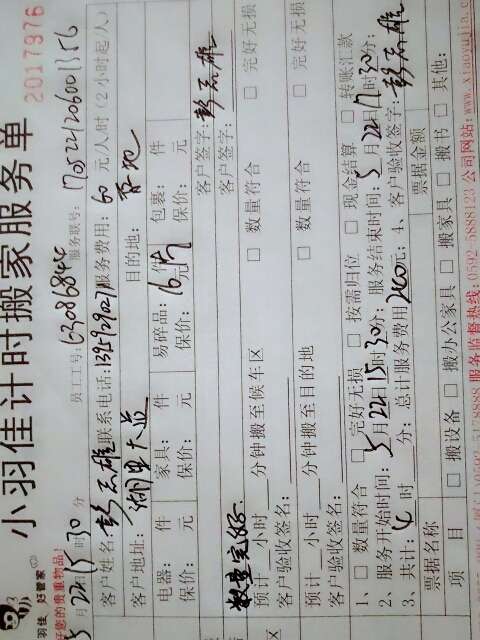 羽佳 好管家
小羽佳计时搬家服务单
2017976
好您的贵重物品!
5月22日15时30分 员工工号:6308684 服务联号:1705221206001356
客户姓名:彭志雄 联系电话: 服务费用:60元/人/时(2小时起/人)
客户地址:湖里大道 目的地:
电器: 件 家具: 件 易碎品:16件 包裹: 件
保价: 元 保价: 元 保价: 元 保价: 元
客户签字:彭志雄
预计 小时 分钟搬至候车区 □ 数量符合 □ 完好无损
客户验收签名: 客户签字:彭志雄
预计 小时 分钟搬至目的地 □ 数量符合 □ 完好无损
客户验收签名:
1、□ 数量符合 □ 完好无损 □ 按需归位 □ 现金结算 □ 转账汇款
2、服务开始时间:5月22日15时30分; 服务结束时间:5月22日17时30分;
3、共计: 时 分; 总计服务费用240元; 4、客户验收签字:彭志雄
票据名称 票据金额
项 目 □ 搬设备 □ 搬办公家具 □ 搬家具 □ 搬书 □ 其他:
服务监督热线:0592-5888123 公司网站:www.xiaoyujia.c